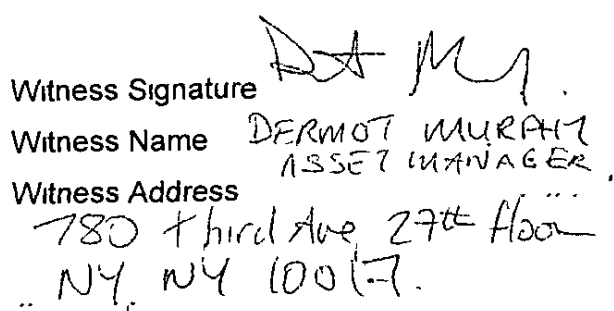 Witness Signature
Witness Name DERMOT MURPHY
ASSET MANAGER.
Witness Address
780 third Ave, 27th floor
NY, NY 10017.